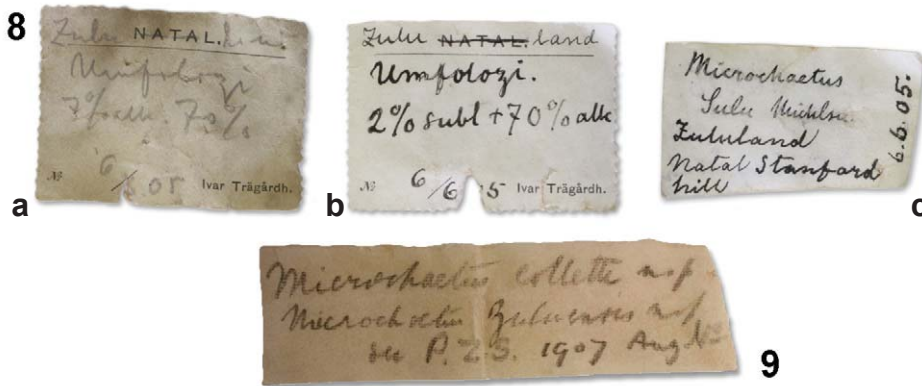 8
Zulu NATAL.
Umfolozi
70%
6/ 05 Ivar Trägårdh.
a
Zulu NATAL. land
Umfolozi.
2% subl + 70% alk
№ 6/6 5 Ivar Trägårdh.
b
Microchaetus
Zululand
Natal Stanford
hill
6.6.05.
c
Microchaetus collette nsp
Microchaetus Zuluensis nsp
see P.Z.S. 1907 Aug
9